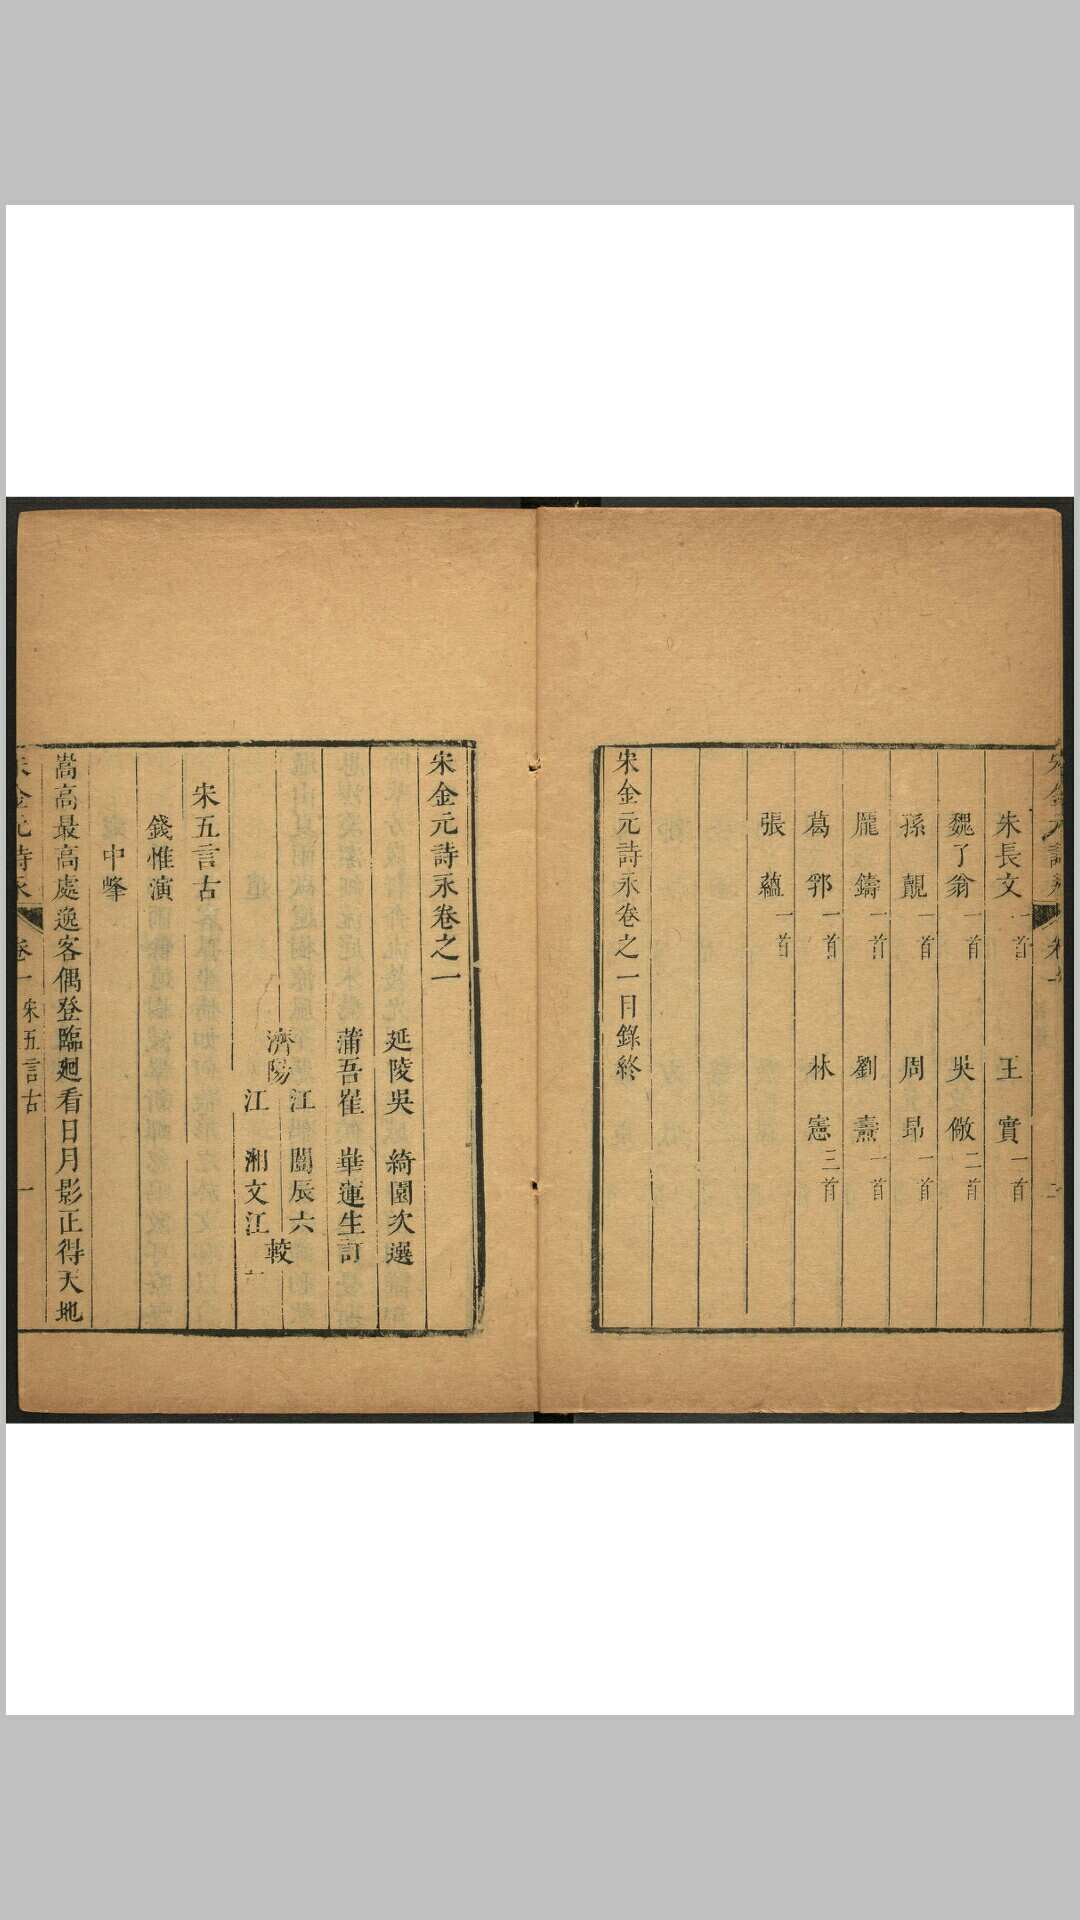 朱長文一首 王實一首
魏了翁一首 吳儆二首
孫覿一首 周昂一首
龐鑄一首 劉燾一首
葛郛一首 林憲三首
張蘊一首
宋金元詩永卷之一目錄終
宋金元詩永卷之一
延陵吳綺園次選
蒲吾崔華蓮生訂
濟陽江闓辰六
江湘文江較
宋五言古
錢惟演
中峰
嵩高最高處逸客偶登臨廻看日月影正得天地
宋金元詩永 卷一 宋五言古 一